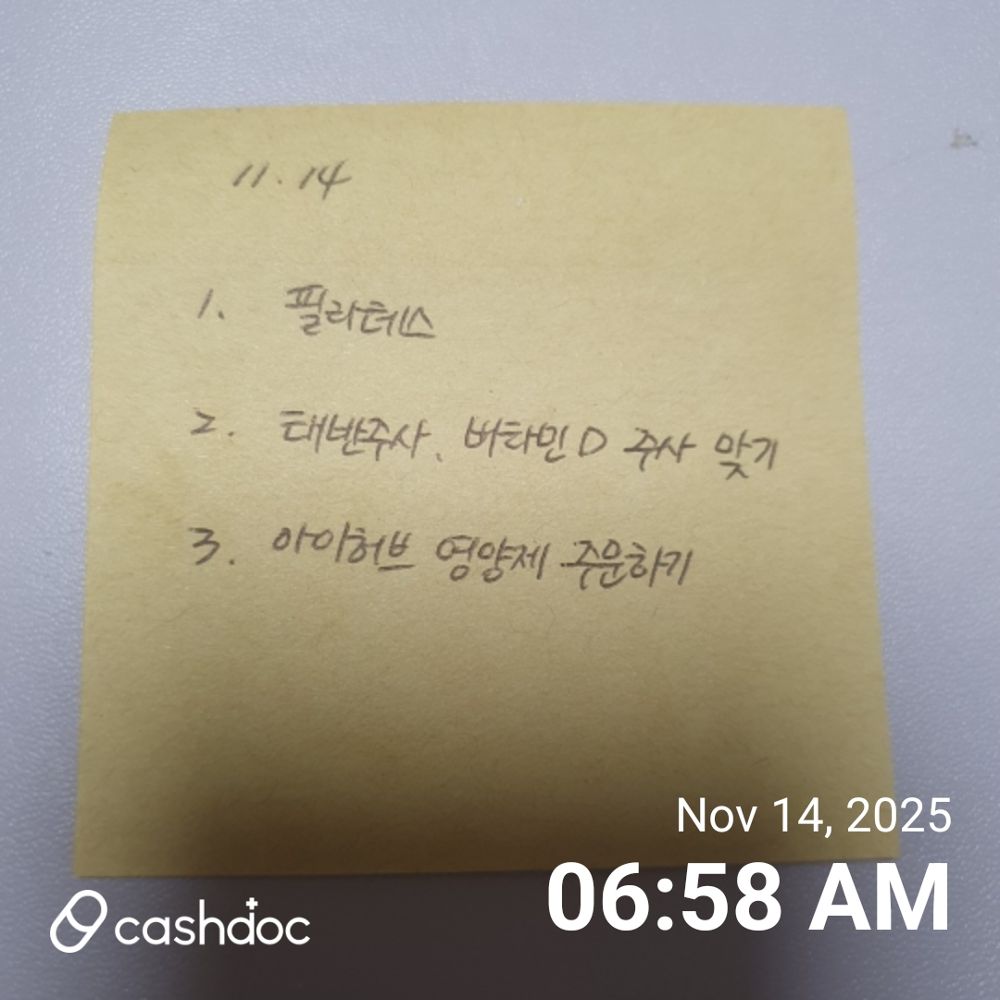 11. 14
1. 필라테스
2. 태반주사, 비타민 D 주사 맞기
3. 아이허브 영양제 주문하기
Nov 14, 2025
06:58 AM
cashdoc